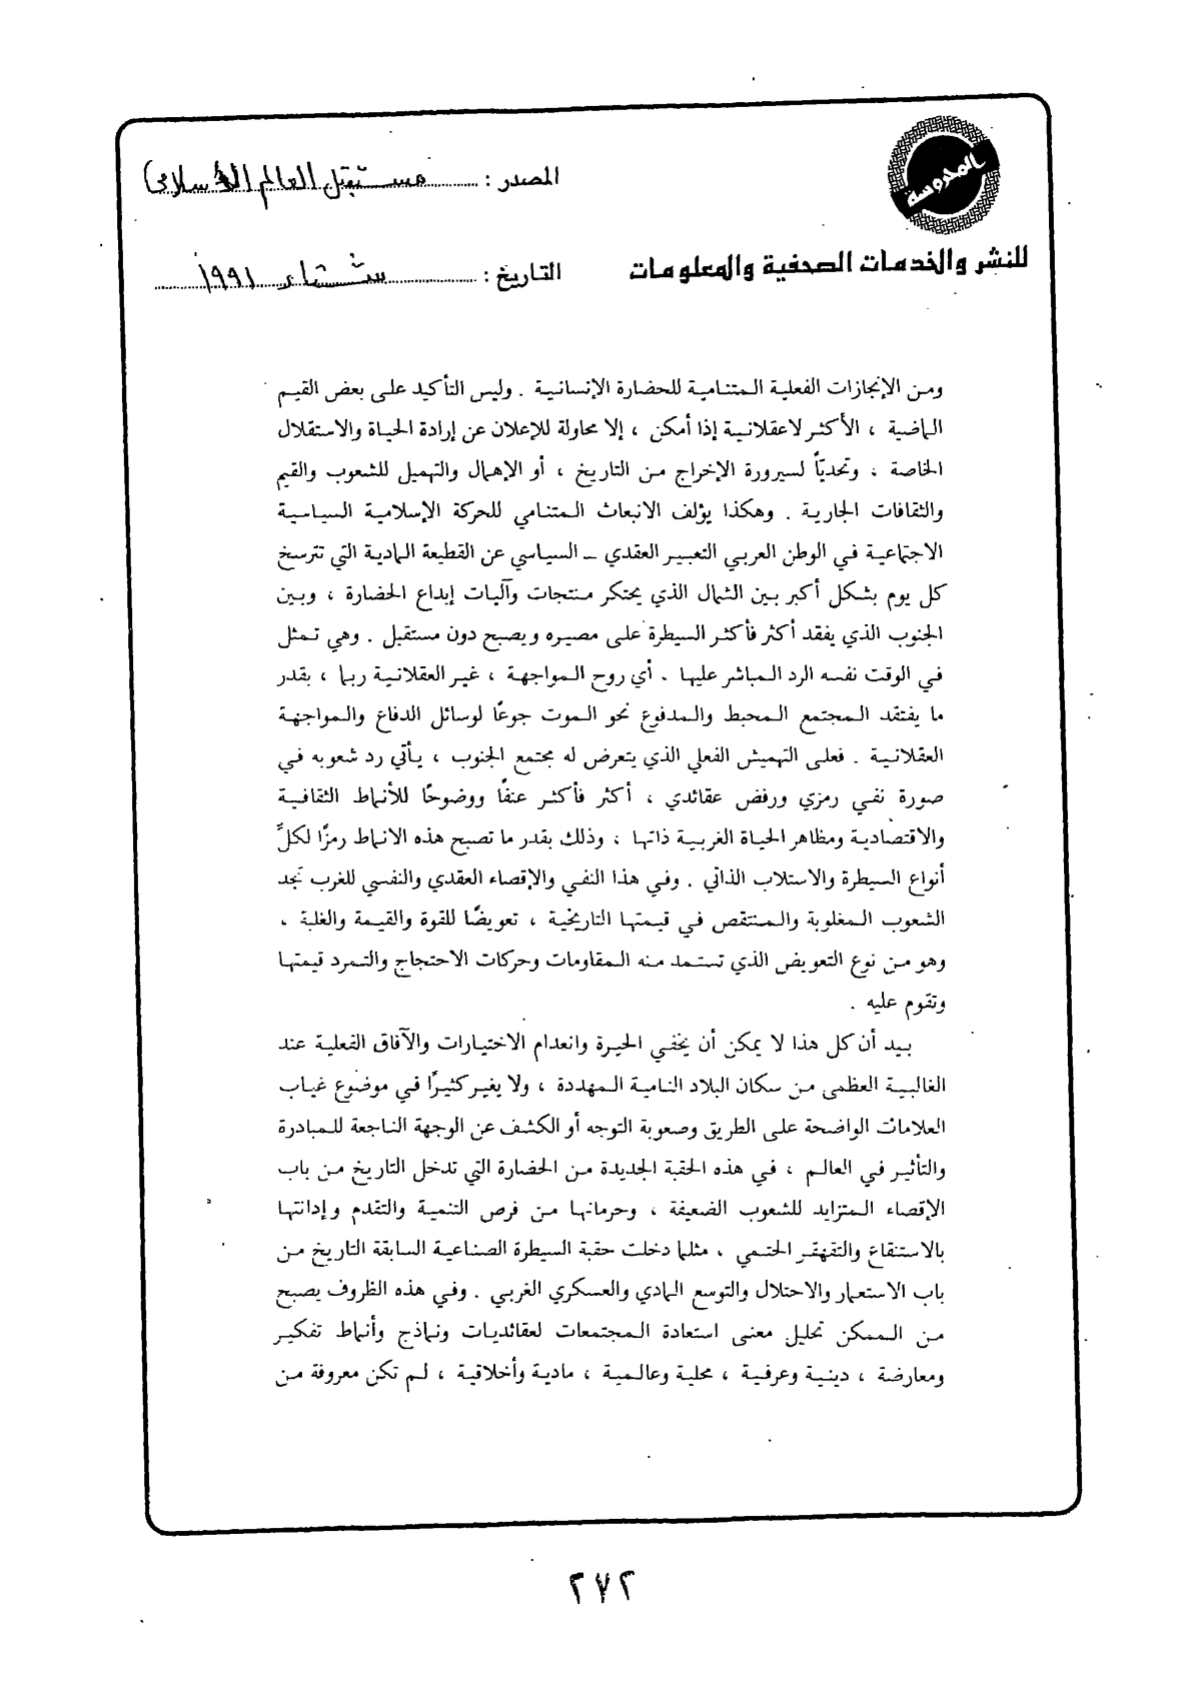 المحروسة
المصدر : مستقبل العالم الإسلامي
للنشر والخدمات الصحفية والمعلومات
التاريخ : شتاء ١٩٩١
ومن الإنجازات الفعلية المتنامية للحضارة الإنسانية . وليس التأكيد على بعض القيم
الماضية ، الأكثر لاعقلانية إذا أمكن ، إلا محاولة للإعلان عن إرادة الحياة والاستقلال
الخاصة ، وتحديّاً لسيرورة الإخراج من التاريخ ، أو الإهمال والتهميل للشعوب والقيم
والثقافات الجارية . وهكذا يؤلف الانبعاث المتنامي للحركة الإسلامية السياسية
الاجتماعية في الوطن العربي التعبير العقدي ــ السياسي عن القطيعة المادية التي تترسخ
كل يوم بشكل أكبر بين الشمال الذي يحتكر منتجات وآليات إبداع الحضارة ، وبين
الجنوب الذي يفقد أكثر فأكثر السيطرة على مصيره ويصبح دون مستقبل . وهي تمثل
في الوقت نفسه الرد المباشر عليها . أي روح المواجهة ، غير العقلانية ربما ، بقدر
ما يفتقد المجتمع المحبط والمدفوع نحو الموت جوعًا لوسائل الدفاع والمواجهة
العقلانية . فعلى التهميش الفعلي الذي يتعرض له مجتمع الجنوب ، يأتي رد شعوبه في
صورة نفي رمزي ورفض عقائدي ، أكثر فأكثر عنفًا ووضوحًا للأنماط الثقافية
والاقتصادية ومظاهر الحياة الغربية ذاتها ، وذلك بقدر ما تصبح هذه الانماط رمزًا لكلِّ
أنواع السيطرة والاستلاب الذاتي . وفي هذا النفي والإقصاء العقدي والنفسي للغرب تجد
الشعوب المغلوبة والمنتقص في قيمتها التاريخية ، تعويضًا للقوة والقيمة والغلبة ،
وهو من نوع التعويض الذي تستمد منه المقاومات وحركات الاحتجاج والتمرد قيمتها
وتقوم عليه .
بيد أن كل هذا لا يمكن أن يخفي الحيرة وانعدام الاختيارات والآفاق الفعلية عند
الغالبية العظمى من سكان البلاد النامية المهددة ، ولا يغير كثيرًا في موضوع غياب
العلامات الواضحة على الطريق وصعوبة التوجه أو الكشف عن الوجهة الناجعة للمبادرة
والتأثير في العالم ، في هذه الحقبة الجديدة من الحضارة التي تدخل التاريخ من باب
الإقصاء المتزايد للشعوب الضعيفة ، وحرمانها من فرص التنمية والتقدم وإدانتها
بالاستنقاع والتقهقر الحتمي ، مثلما دخلت حقبة السيطرة الصناعية السابقة التاريخ من
باب الاستعمار والاحتلال والتوسع المادي والعسكري الغربي . وفي هذه الظروف يصبح
من الممكن تحليل معنى استعادة المجتمعات لعقائديات ونماذج وأنماط تفكير
ومعارضة ، دينية وعرفية ، محلية وعالمية ، مادية وأخلاقية ، لم تكن معروفة من
٢٧٢